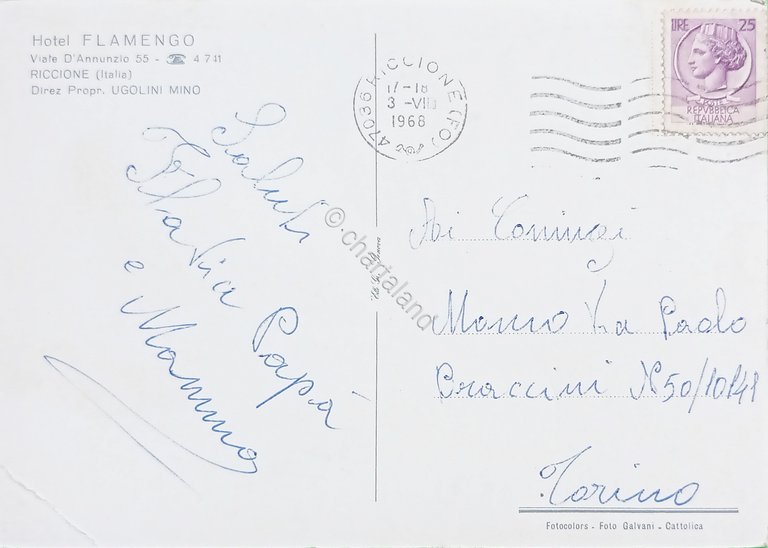 Hotel FLAMENGO
Viale D'Annunzio 55 - ☎ 4 7 41
RICCIONE (Italia)
Direz Propr. UGOLINI MINO
Saluti
Flavia Papà
e Mamma
47036 RICCIONE (FO)
17-18
3-VIII
1968
LIRE 25
POSTE
REPVBBLICA
ITALIANA
© chartaland
Via Paolo
Braccini N° 50/10141
Torino
Fotocolors - Foto Galvani - Cattolica